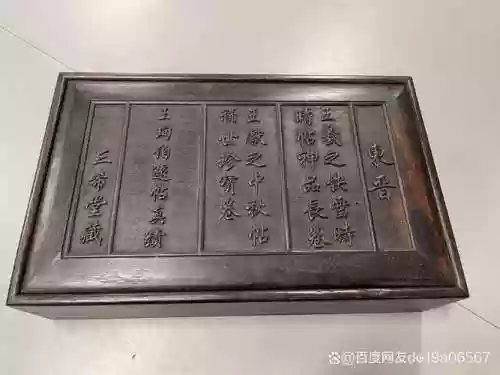 東晋
王羲之快雪時
晴帖神品長卷
王獻之中秋帖
稀世珍寶卷
王珣伯遠帖真蹟
三希堂藏
百度网友de19a06567